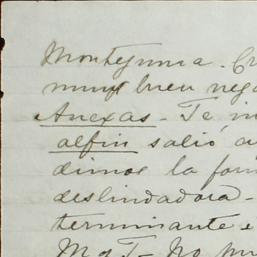 Montezuma. Cr
muy buen neg
Anexas - Te in
alfin salió a
dimos la for
deslindadora -
terminante e
M y T - No pu